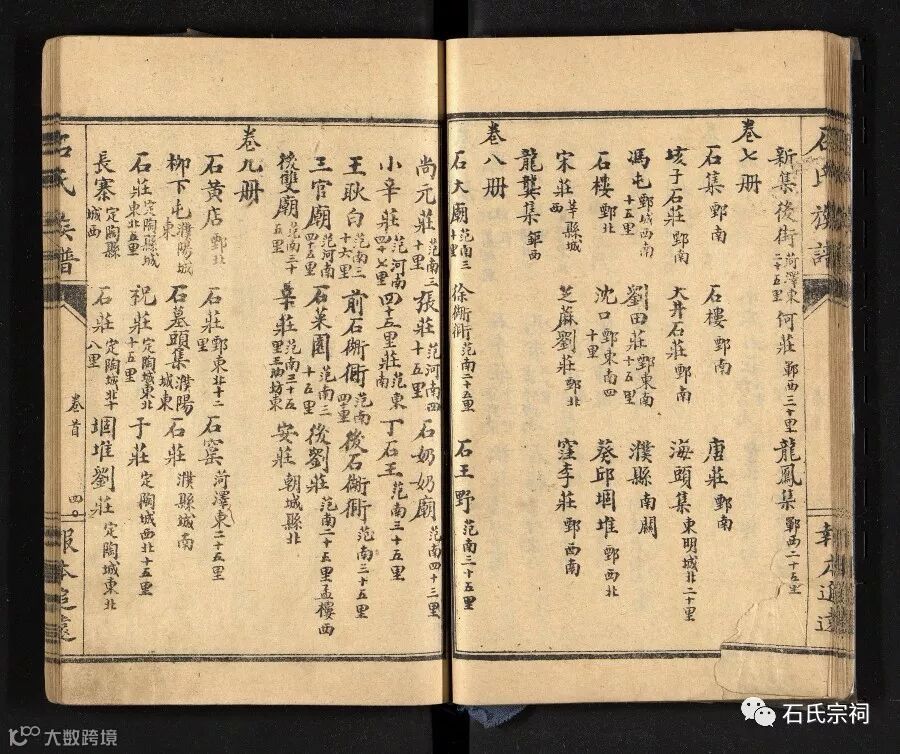 石氏族譜
新集後街 菏澤東二十五里 何莊 鄄西三十里 龍鳳集 鄄西二十五里
卷七册
石集 鄄南 石樓 鄄南 唐莊 鄄南
垓子石莊 鄄南 大井石莊 鄄南 海頭集 東明城北二十里
馮屯 鄄城西南十五里 劉田莊 鄄東南十五里 濮縣南關
石樓 鄄北 沈口 鄄東南四十里 葵邱堌堆 鄄西北
宋莊 莘縣城西 芝蔴劉莊 鄄北 窪李莊 鄄西南
龍龔集 鉅西
卷八册
石大廟 范南三十里 徐衚衕 范南二十五里 石王野 范南三十五里
報本追遠
尚元莊 范南三十里 張莊 范河南四十里 石奶奶廟 范南四十三里
小辛莊 范河南四十七里 四十五里莊 范東南 丁石王 范南三十五里
王耿白 范南三十六里 前石衚衕 范南四十里 後石衚衕 范南三十五里
三官廟 范河南四十五里 石菓園 范南三十五里 後劉莊 范南二十五里孟樓西
後雙廟 范南三十五里 葉莊 范南三十五里油坊東 安莊 朝城縣北
卷九册
石黃店 鄄北 石莊 鄄東北十二里 石窯 菏澤東二十五里
柳下屯 濮陽城東 石墓頭集 濮陽城東 石莊 濮縣城南
石莊 定陶縣城東北五里 祝莊 定陶城東北十五里 于莊 定陶城西北十五里
長寨 定陶縣城西 石莊 定陶城北十八里 堌堆劉莊 定陶城東北
石氏族譜
卷首
四〇
報本追遠
石氏宗祠
大数跨境